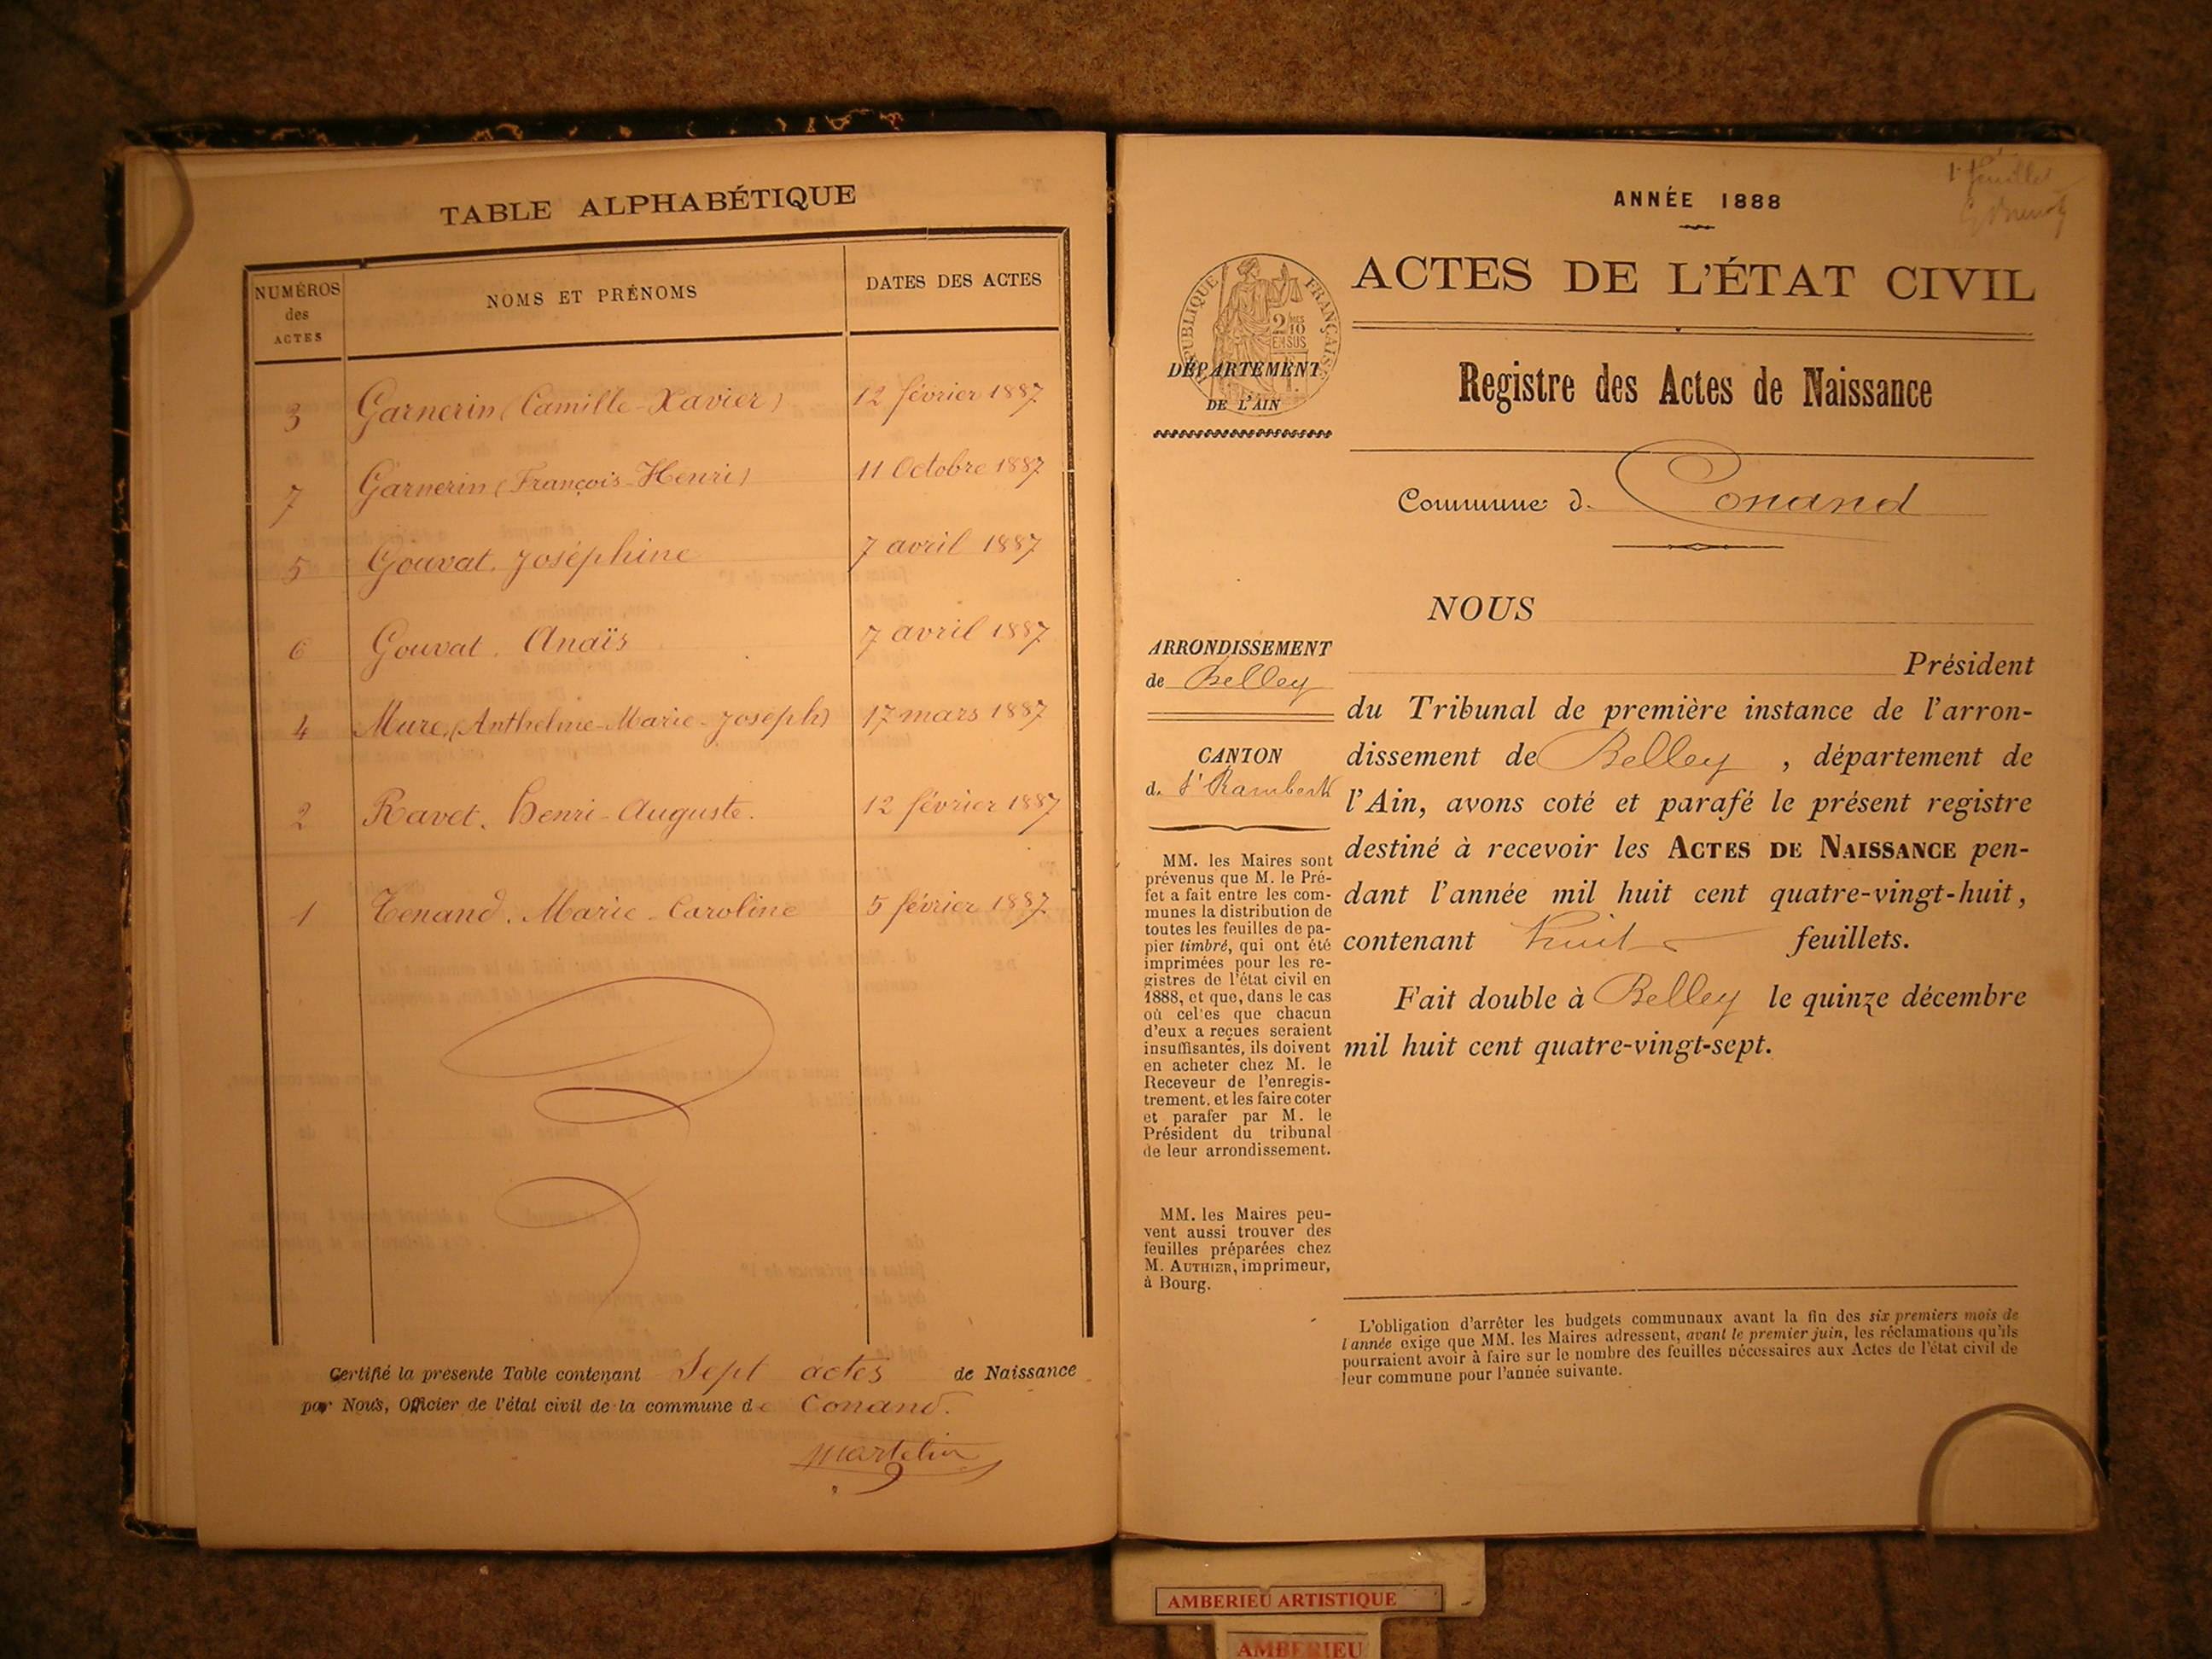 TABLE ALPHABÉTIQUE
NUMÉROS des ACTES
NOMS ET PRÉNOMS
DATES DES ACTES
3 Garnerin (Camille-Xavier) 12 février 1887
7 Garnerin (François-Henri) 11 Octobre 1887
5 Gouvat. Joséphine 7 avril 1887
6 Gouvat. Anaïs 7 avril 1887
4 Mure, (Anthelme-Marie-Joseph) 17 mars 1887
2 Ravet. Henri-Auguste. 12 février 1887
1 Tenand. Marie-Caroline 5 février 1887
Certifié la présente Table contenant Sept actes de Naissance
par Nous, Officier de l'état civil de la commune de Conand.
Martelin
1er feuillet
ANNÉE 1888
ACTES DE L'ÉTAT CIVIL
RÉPUBLIQUE FRANÇAISE
2 10
EN SUS
DÉPARTEMENT
DE L'AIN
Registre des Actes de Naissance
Commune d. Conand
ARRONDISSEMENT
de Belley
CANTON
d. St Rambert
MM. les Maires sont
prévenus que M. le Pré-
fet a fait entre les com-
munes la distribution de
toutes les feuilles de pa-
pier timbré, qui ont été
imprimées pour les re-
gistres de l'état civil en
1888, et que, dans le cas
où celles que chacun
d'eux a reçues seraient
insuffisantes, ils doivent
en acheter chez M. le
Receveur de l'enregis-
trement. et les faire coter
et parafer par M. le
Président du tribunal
de leur arrondissement.
MM. les Maires peu-
vent aussi trouver des
feuilles préparées chez
M. AUTHIER, imprimeur,
à Bourg.
NOUS
Président
du Tribunal de première instance de l'arron-
dissement de Belley , département de
l'Ain, avons coté et parafé le présent registre
destiné à recevoir les ACTES DE NAISSANCE pen-
dant l'année mil huit cent quatre-vingt-huit,
contenant huit feuillets.
Fait double à Belley le quinze décembre
mil huit cent quatre-vingt-sept.
L'obligation d'arrêter les budgets communaux avant la fin des six premiers mois de
l'année exige que MM. les Maires adressent, avant le premier juin, les réclamations qu'ils
pourraient avoir à faire sur le nombre des feuilles nécessaires aux Actes de l'état civil de
leur commune pour l'année suivante.
AMBERIEU ARTISTIQUE
AMBERIEU